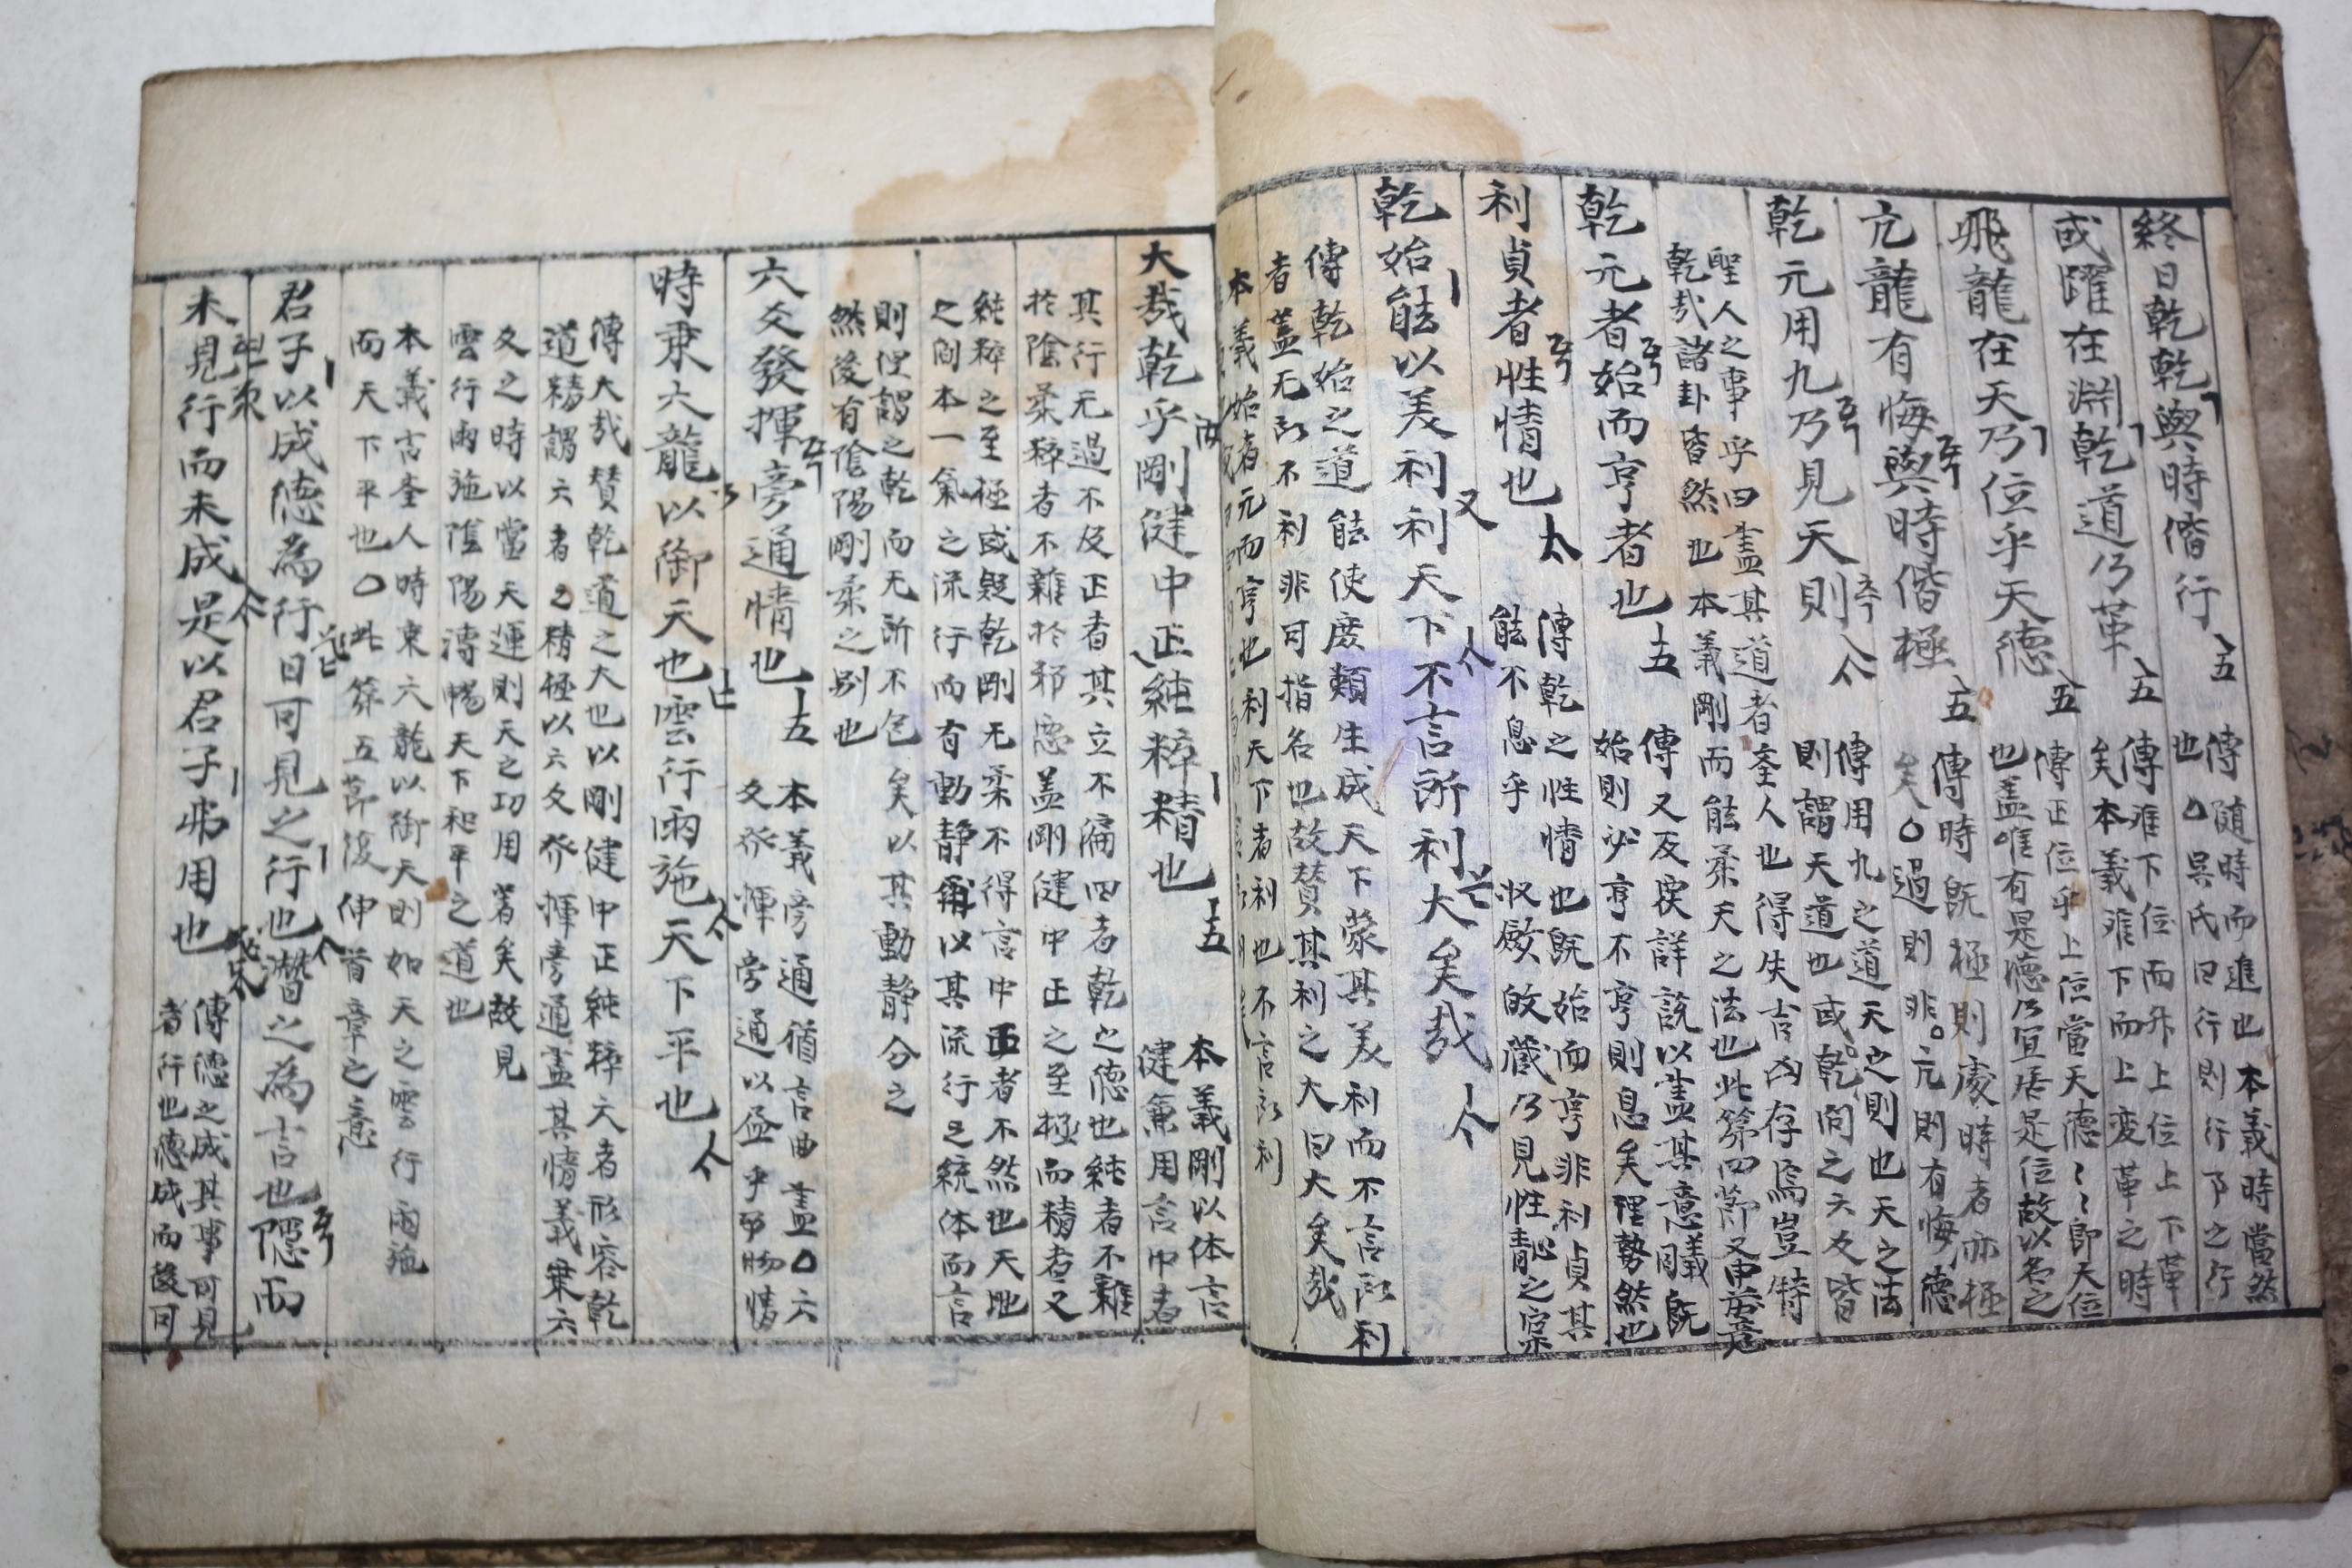 終日乾乾與時偕行 傳随時而進也本義時當然
也○吳氏曰行則行乃之行
或躍在淵乾道乃革 傳难下位而升上位上下革
矣本義难下而上变革之時
飛龍在天乃位乎天德 傳正位乎上位當天德〻即天位
也盖唯有是德乃宜居是位故以名之
亢龍有悔與時偕極 傳時既極則處時者亦極
矣○過則非亢則有悔
乾元用九乃見天則 傳用九之道天之則也天之法
則謂天道也或乾問之六爻皆
聖人之事乎曰盡其道者聖人也得失吉凶存焉豈特
乾哉諸卦皆然也本義剛而能柔天之法也此第四節又申前意
乾元者始而亨者也 傳又反覆詳説以盡其意旣
始則必亨不亨則息矣理勢然也
利貞者性情也 傳乾之性情也既始而亨非利貞其
能不息乎 收斂皈藏乃見性情之宲
乾始能以美利利天下不言所利大矣哉
傳乾始之道能使庶類生成天下蒙其美利而不言所利
者盖无所不利非可指名也故賛其利之大曰大矣哉
本義始者元而亨也利天下者利也不言所利
大哉乾乎剛健中正純粹精也 本義剛以体言
健兼用言中者
其行无過不及正者其立不偏四者乾之德也純者不雜
於陰柔粹者不雜於邪惡盖剛健中正之至極而精者又
純粹之至極或疑乾剛无柔不得言中正者不然也天地
之间本一氣之流行而有動静爾以其流行之統体而言
則但謂之乾而无所不包矣以其動静分之
然後有陰陽剛柔之别也
六爻發揮旁通情也 本義旁通猶言曲盡○六
爻發揮旁通以盡乎事物情
時乘六龍以御天也雲行雨施天下平也
傳大哉賛乾道之大也以剛健中正純粹六者形容乾
道精謂六者之精極以六爻發揮旁通盡其情義乗六
爻之時以當天運則天之功用著矣故見
雲行雨施陰陽溥暢天下和平之道也
本義言聖人時乘六龍以御天則如天之雲行雨施
而天下平也○此第五節復伸首章之意
君子以成德為行日可見之行也潛之為言也隱而
未見行而未成是以君子弗用也 傳德之成其事可見
者行也德成而後可